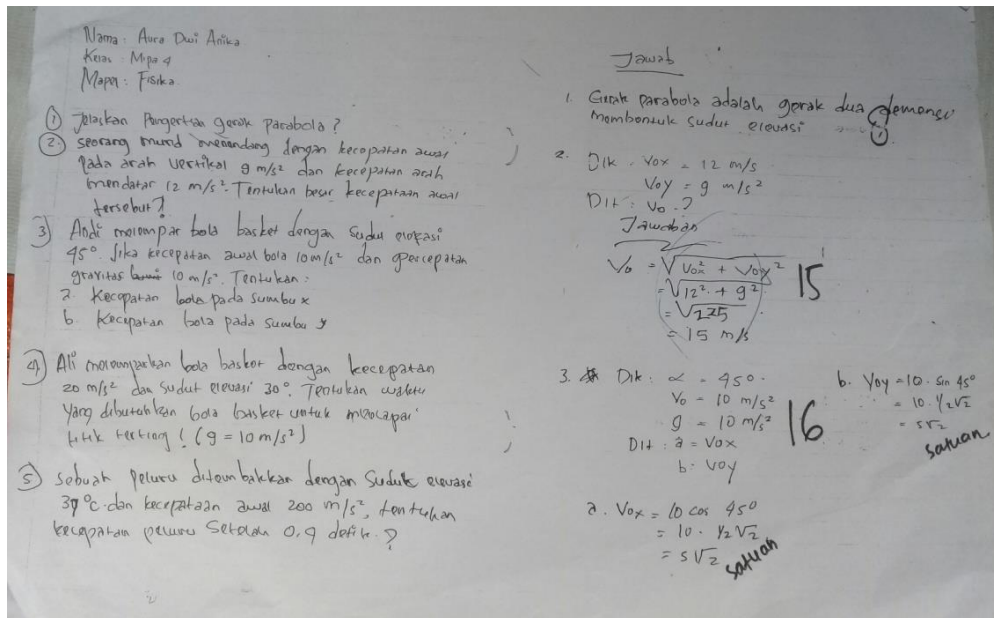 Nama : Aura Dwi Anika
Kelas : Mipa 4
Mapel : Fisika
1 Jelaskan Pengertian gerak parabola ?
2. seorang murid menendang dengan kecepatan awal
pada arah vertikal 9 m/s² dan kecepatan arah
mendatar 12 m/s². Tentukan besar kecepataan awal
tersebut ?
3) Andi melempar bola basket dengan sudut elevasi
45°. Jika kecepatan awal bola 10 m/s² dan percepatan
gravitasi 10 m/s². Tentukan :
a. Kecepatan bola pada sumbu x
b. Kecepatan bola pada sumbu y
4) Ali melemparkan bola basket dengan kecepatan
20 m/s² dan sudut elevasi 30°. Tentukan waktu
yang dibutuhkan bola basket untuk mencapai
titik tertinggi ! (g = 10 m/s²)
5) Sebuah Peluru ditembakkan dengan Sudut elevasi
37°C dan kecepataan awal 200 m/s², tentukan
kecepatan peluru Setelah 0,4 detik ?
Jawab
1. Gerak parabola adalah gerak dua demensi
membentuk sudut elevasi
2. Dik : Vox = 12 m/s
Voy = 9 m/s²
Dit : Vo . ?
Jawaban
Vo = √Vox² + Voy²
= √12² + 9²
= √225
= 15 m/s
15
3. Dik : α = 45°
Vo = 10 m/s²
g = 10 m/s²
Dit : a = Vox
b : Voy
16
a. Vox = 10 cos 45°
= 10 . ½√2
= 5√2 satuan
b. Voy = 10 . sin 45°
= 10 . ½√2
= 5√2
satuan